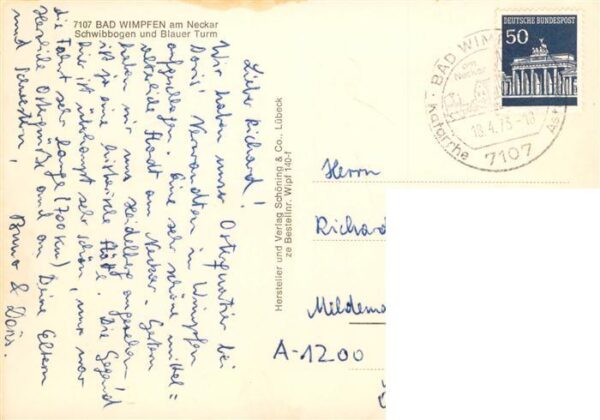 7107 BAD WIMPFEN am Neckar
Schwibbogen und Blauer Turm
Lieber Richard!
Wir haben unser Osterquartier bei
Doris' Verwandten in Wimpfen
aufgeschlagen. Eine sehr schöne mittel=
alterliche Stadt am Neckar. Gestern
haben wir uns Heidelberg angesehen!
ist ja eine historische Stätte. Die Gegend
hier ist überhaupt sehr schön, nur war
die Fahrt sehr lange (700 km)
Herzliche Ostergrüße auch an Deine Eltern
und Schwestern,
Bruno & Doris.
Hersteller und Verlag Schöning & Co., Lübeck
ze Bestellnr. Wipf 140-f
DEUTSCHE BUNDESPOST
50
BAD WIMP
am
Neckar
18.4.73-18
7107
Herrn
Richard
Mildema
A-1200